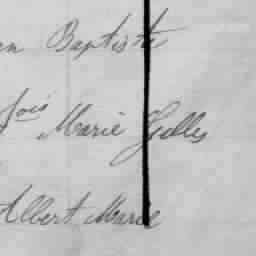 Baptiste
fois
Marie Gilles
Albert Marie